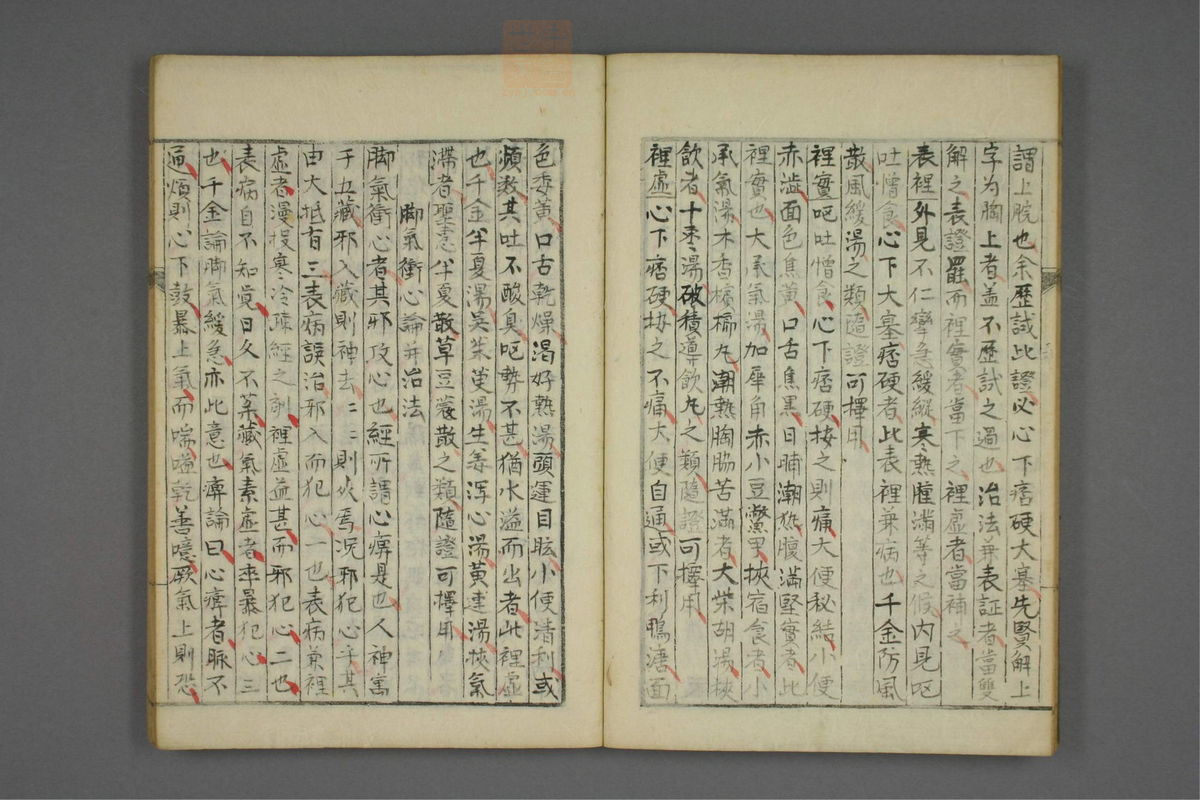 謂上脘也余歷試此證必心下痞硬大塞先賢解上
字为胸上者盖不歷試之過也治法兼表証者當雙
解之表證罷而裡實者當下之裡虛者當補之
表裡外見不仁攣急緩縱寒熱腫滿等之候内見呕
吐憎食心下大塞痞硬者此表裡兼病也千金防風
散風緩湯之類隨證可擇用
裡實呕吐憎食心下痞硬按之則痛大便秘結小便
赤澁面色焦黄口舌焦黒日晡潮热腹満堅實者此
裡實也大承氣湯加犀角赤小豆鱉甲挾宿食者小
承氣湯木香檳榔丸潮熱胸脇苦滿者大柴胡湯挾
飲者十枣湯破積導飲丸之類隨證可擇用
裡虛心下痞硬按之不痛大便自通或下利鴨溏面
色委黄口舌乾燥渴好熱湯頭運目眩小便清利或
頻数其吐不酸臭呕勢不甚猶水溢而出者此裡虛
也千金半夏湯吴茱萸湯生姜泻心湯黄連湯挾氣
滞者聖惠半夏散草豆蔻散之類隨證可擇用
脚氣衝心論并治法
脚氣衝心者其邪攻心也經所謂心痹是也人神寓
于五藏邪入藏則神去二二則死焉况邪犯心乎其
由大抵有三表病誤治邪入而犯心一也表病兼裡
虛者漫投寒冷疎經之剤裡虛益甚而邪犯心二也
表病自不知覚日久不薬藏氣素虛者率暴犯心三
也千金論脚氣緩急亦此意也痹論曰心痹者脈不
通煩則心下鼓暴上氣而喘嗌乾善噫厥氣上則恐